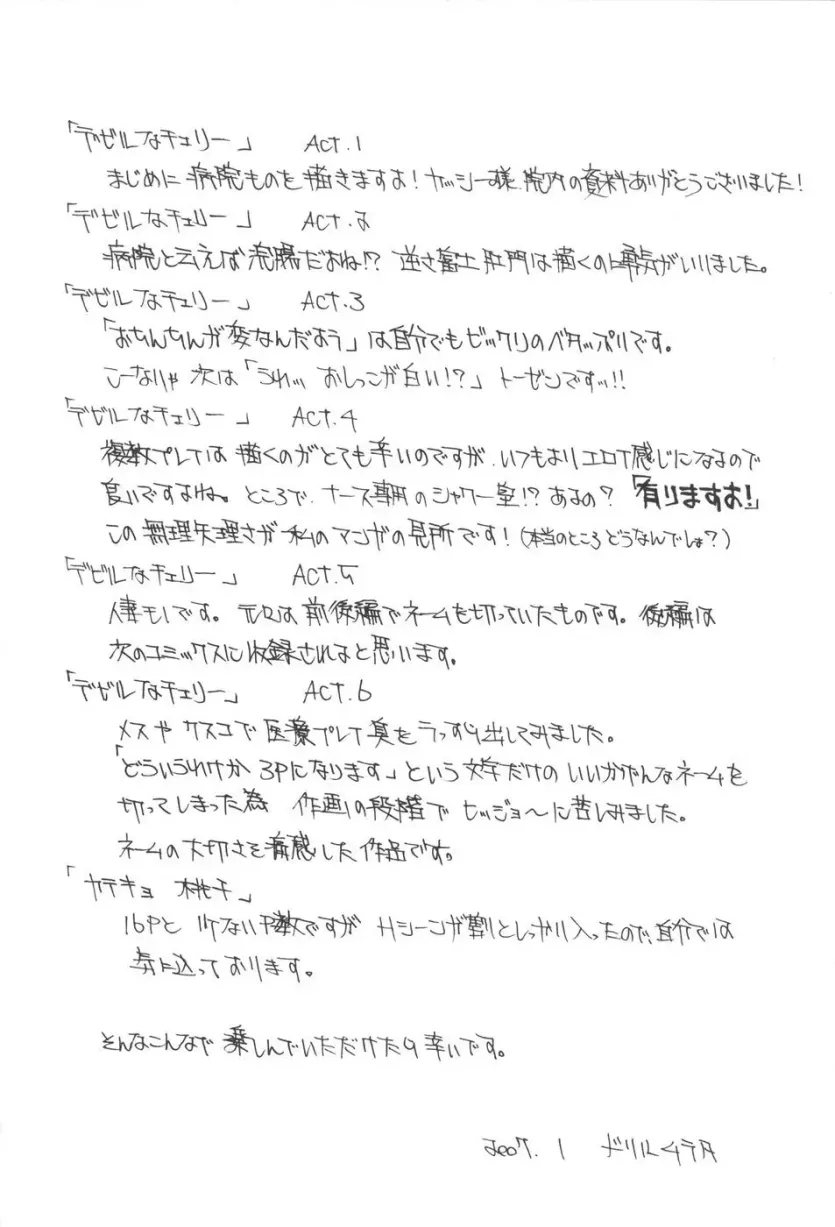 「デビルなチェリー」 Act.1
まじめに病院ものを描きますよ！ヤッシー様、院内の資料ありがとうございました！
「デビルなチェリー」 Act.2
病院と云えば浣腸だよね!? 逆さ富士肛門は描くのに勇気がいりました。
「デビルなチェリー」 Act.3
「おちんちんが変なんだよう」は自分でもビックリのベタッぷりです。
こーなりゃ次は「うわッ おしっこが白い!?」トーゼンですッ!!
「デビルなチェリー」 Act.4
複数プレイは描くのがとても辛いのですが、いつもよりエロイ感じになるので
良いですよね。ところで、ナース専用のシャワー室!? あるの？「有りますよ！」
この無理矢理さが私のマンガの見所です！（本当のところどうなんでしょ？）
「デビルなチェリー」 Act.5
人妻モノです。元々は前後編でネームを切っていたものです。後編は
次のコミックスに収録されると思います。
「デビルなチェリー」 Act.6
メスやクスコで医療プレイ臭をうっすら出してみました。
「どういうわけか3Pになります」という文字だけのいいかげんなネームを
切ってしまった為 作画の段階で ヒッジョ〜に苦しみました。
ネームの大切さを痛感した作品です。
「カテキョ 桃子」
16Pと少ないP数ですがHシーンが割としっかり入ったので、自分では
気に込っております。
そんなこんなで楽しんでいただけたら幸いです。
2007. 1 ドリルムラタ